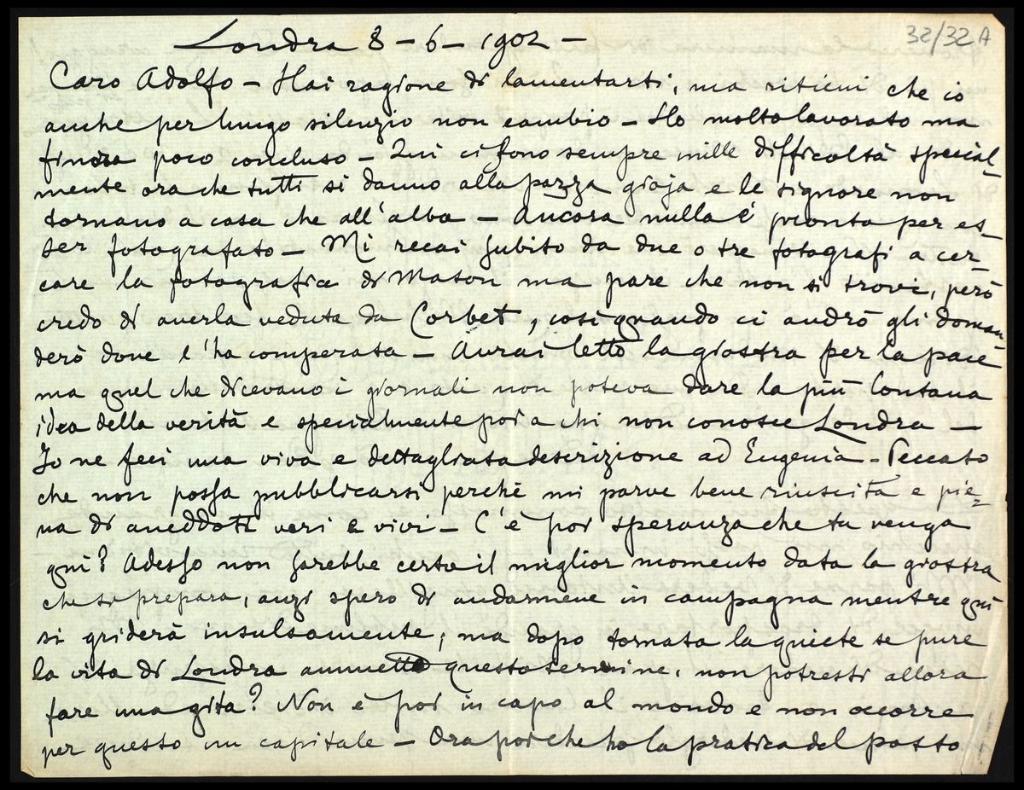 32/32A
Londra 8-6-1902-
Caro Adolfo - Hai ragione di lamentarti, ma ritieni che io
anche per lungo silenzio non cambio - Ho molto lavorato ma
finora poco concluso - Qui ci sono sempre mille difficoltà special-
mente ora che tutti si danno alla pazza gioja e le signore non
tornano a casa che all'alba - Ancora nulla è pronto per es-
ser fotografato - Mi recai subito da due o tre fotografi a cer-
care la fotografia di Mason ma pare che non si trovi, però
credo di averla veduta da Corbet, così quando ci andrò gli doman
derò dove l'ha comperata - Avrai letto la giostra per la pace
ma quel che dicevano i giornali non poteva dare la più lontana
idea della verità e specialmente poi a chi non conosce Londra -
Io ne feci una viva e dettagliata descrizione ad Eugenia - Peccato
che non possa pubblicarsi perchè mi parve bene riuscita e pie=
na di aneddoti veri e vivi - C'è poi speranza che tu venga
qui? Adesso non sarebbe certo il miglior momento data la giostra
che si prepara, anzi spero di andarmene in campagna mentre qui
si griderà insulsamente, ma dopo tornata la quiete se pure
la vita di Londra ammette questo termine, non potresti allora
fare una gita? Non è poi in capo al mondo e non occorre
per questo un capitale - Ora poi che ho la pratica del posto